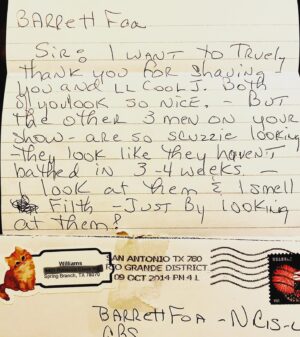 BARRETT FOA
SIR: I WANT TO TRUELY
THANK YOU FOR SHAVING,
YOU AND LL COOL J. BOTH
OF YOU LOOK SO NICE. - BUT
THE OTHER 3 MEN ON YOUR
SHOW - ARE SO SLUZZIE LOOKING
- THEY LOOK LIKE THEY HAVEN'T
BATHED IN 3-4 WEEKS -
I LOOK AT THEM & I SMELL
FILTH - JUST BY LOOKING
AT THEM!
Williams
Spring Branch, TX 78070
SAN ANTONIO TX 780
RIO GRANDE DISTRICT
09 OCT 2014 PM 4 L
BARRETT FOA - NCIS-L
CBS